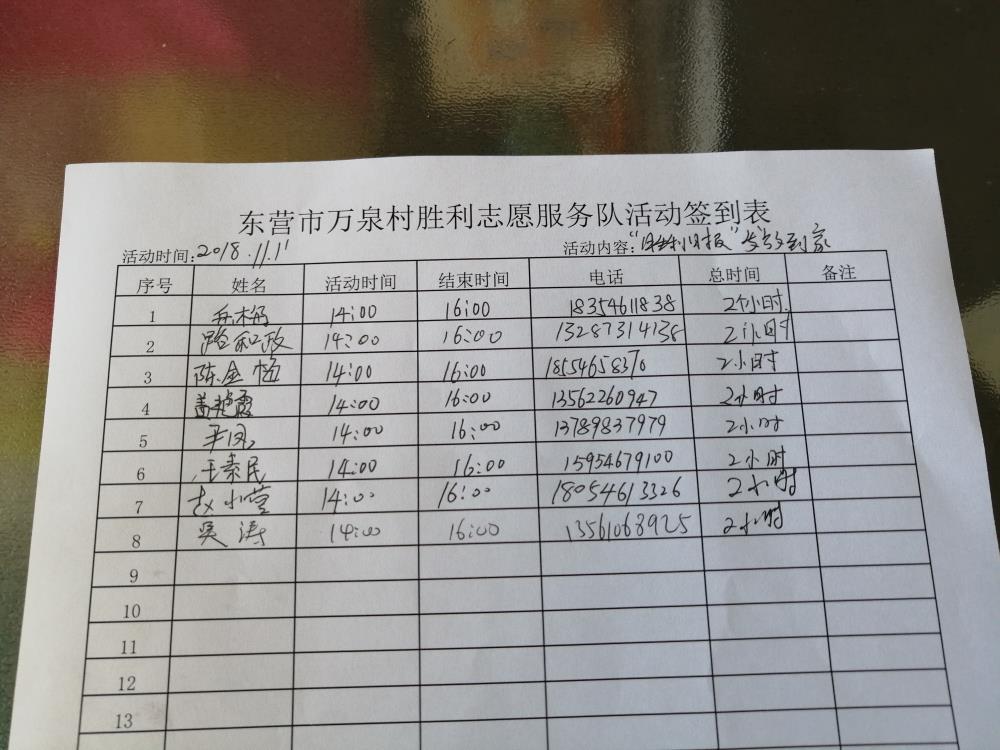 东营市万泉村胜利志愿服务队活动签到表
活动时间：2018.11.1 活动内容："胜利日报"发放到家
序号 姓名 活动时间 结束时间 电话 总时间 备注
1 14:00 16:00 18354611838 2个小时
2 路和政 14:00 16:00 13287314138 2小时
3 陈金 14:00 16:00 18554658370 2小时
4 盖艳霞 14:00 16:00 13562260947 2小时
5 14:00 16:00 13789837979 2小时
6 王素民 14:00 16:00 15954679100 2小时
7 赵小莹 14:00 16:00 18054613326 2小时
8 吴涛 14:00 16:00 13561068925 2小时
9
10
11
12
13